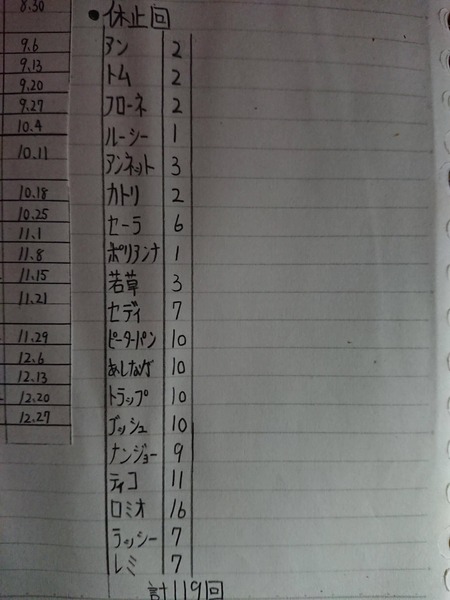 8.30
9.6
9.13
9.20
9.27
10.4
10.11
10.18
10.25
11.1
11.8
11.15
11.21
11.29
12.6
12.13
12.20
12.27
●休止回
アン 2
トム 2
フローネ 2
ルーシー 1
アンネット 3
カトリ 2
セーラ 6
ポリアンナ 1
若草 3
セディ 7
ピーターパン 10
あしなが 10
トラップ 10
ブッシュ 10
ナンジョー 9
ティコ 11
ロミオ 16
ラッシー 7
レミ 7
計119回